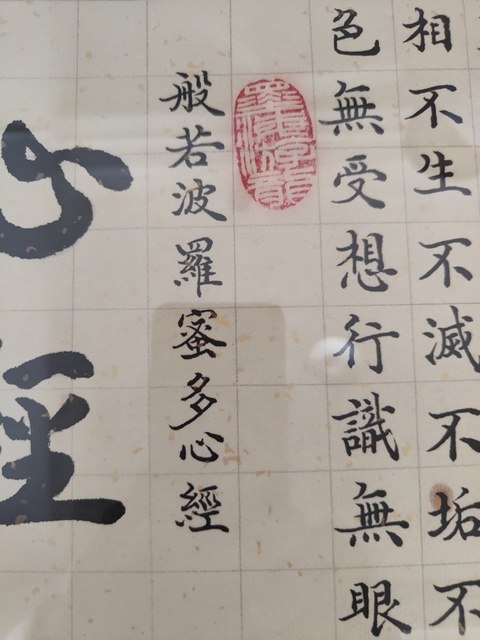 相不生不滅不垢不
色無受想行識無眼
般若波羅蜜多心經
心經